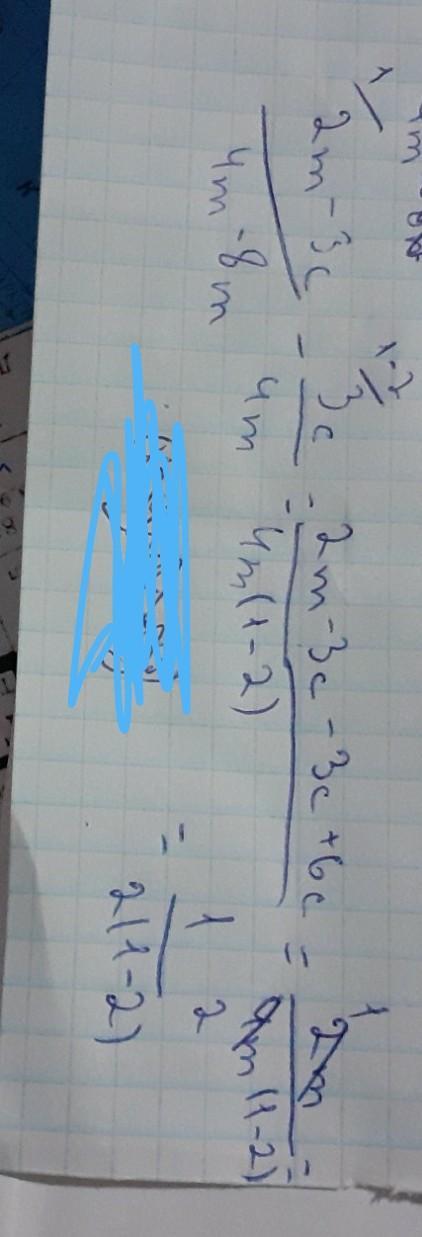 4m-8
1/ 1-2/
(2m-3c)/(4m-8m) - 3c/4m = (2m-3c-3c+6c)/(4m(1-2)) = 2m/(4m(1-2)) =
1
2
= 1/(2(1-2))